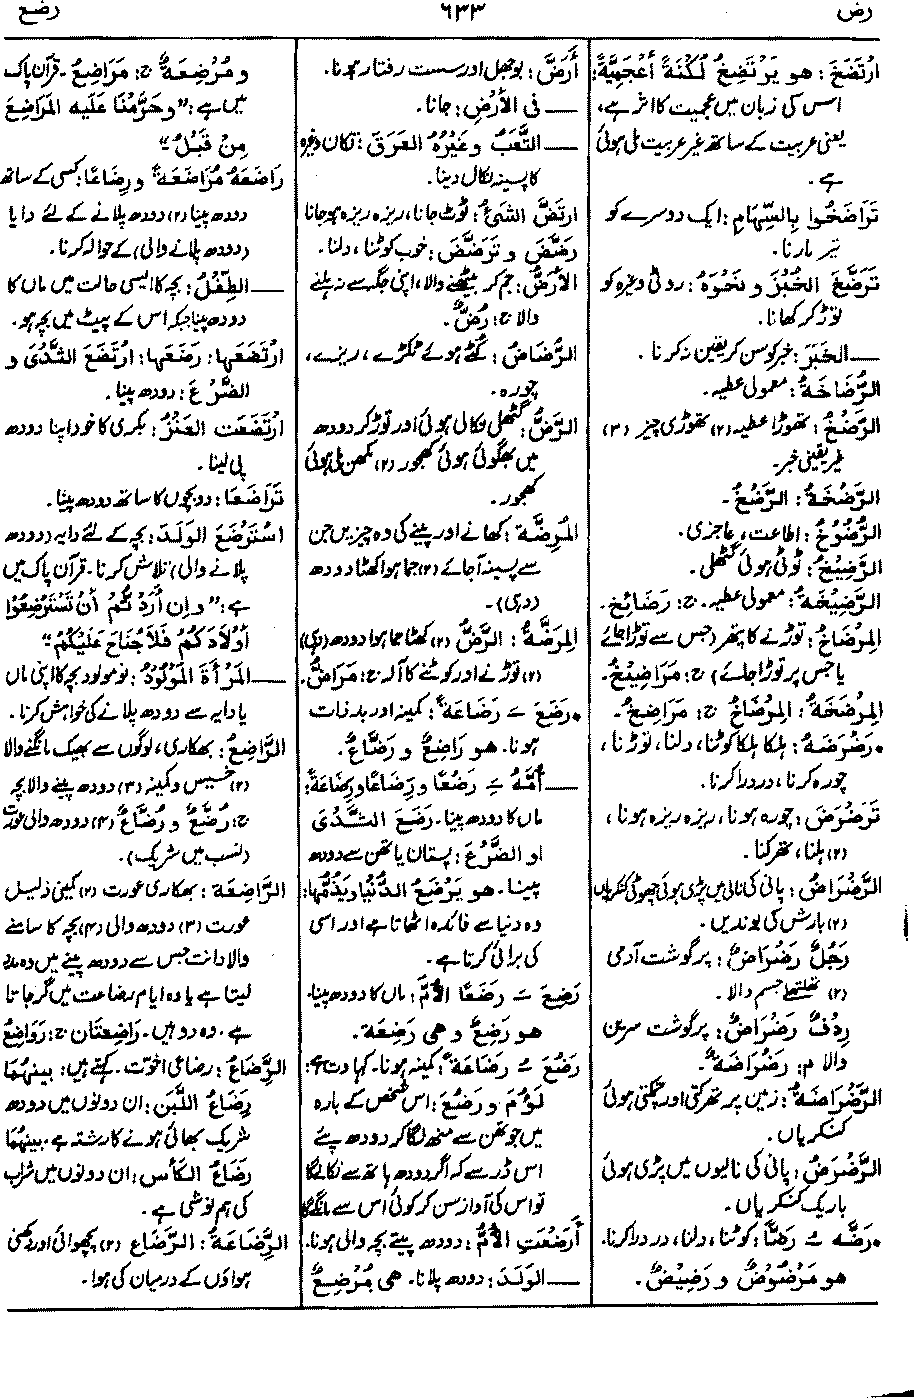 رض
٦٣٣
رضع
ارْتَضَخَ: هو يَرْتَضِخُ لُكْنَةً أَعْجَمِيَّةً:
اس کی زبان میں عجمیت کا اثر ہے،
یعنی عربیت کے ساتھ غیر عربیت ملی ہوئی
ہے۔
تَرَاضَخُوا بِالسِّهَامِ: ایک دوسرے کو
تیر مارنا۔
تَرَضَّخَ الخُبْزَ و نَحْوَهُ: روٹی وغیرہ کو
توڑ کر کھانا۔
—— الخَبَرَ: خبر کو سن کر یقین نہ کرنا۔
الرُّضَاخَةُ: معمولی عطیہ۔
الرَّضْخُ: تھوڑا عطیہ (۲) تھوڑی چیز (۳)
غیر یقینی خبر۔
الرَّضْخَةُ: الرَّضْخُ۔
الرُّضُوْخُ: اطاعت، عاجزی۔
الرَّضِيْخُ: ٹوٹی ہوئی گٹھلی۔
الرَّضِيْخَةُ: معمولی عطیہ۔ ج: رَضَائِخ۔
المِرْضَاخُ: توڑنے کا پتھر (جس سے توڑا جائے
یا جس پر توڑا جائے) ج: مَرَاضِيْخُ۔
المِرْضَخَةُ: المِرْضَاخُ ج: مَرَاضِخُ۔
• رَضْرَضَهُ: ہلکا ہلکا کوٹنا، دلنا، توڑنا،
چورہ کرنا، دردرا کرنا۔
تَرَضْرَضَ: چورہ ہونا، ریزہ ریزہ ہونا،
(۲) ہلنا، تھرکنا۔
الرَّضْرَاضُ: پانی کی نالی میں پڑی ہوئی چھوٹی کنکریاں
(۲) بارش کی بوندیں۔
رَجُلٌ رَضْرَاضٌ: پر گوشت آدمی
(۲) تھلتھلے جسم والا۔
رِدْفٌ رَضْرَاضٌ: پر گوشت سرین
والا م: رَضْرَاضَةٌ۔
الرَّضْرَاضَةُ: زمین پر تھرکتی اور چمکتی ہوئی
کنکریاں۔
الرَّضْرَضُ: پانی کی نالیوں میں پڑی ہوئی
باریک کنکریاں۔
• رَضَّهُ ـُ رَضًّا: کوٹنا، دلنا، دردرا کرنا۔
هو مَرْضُوْضٌ و رَضِيْضٌ۔
أَرَضَّ: بوجھل اور سست رفتار ہونا۔
—— فى الأَرْضِ: جانا۔
—— التَّعَبُ وغَيْرُهُ العَرَقَ: تکان وغیرہ
کا پسینہ نکال دینا۔
ارتَضَّ الشئُ: ٹوٹ جانا، ریزہ ریزہ ہوجانا
رَضَّضَ و تَرَضَّضَ: خوب کوٹنا، دلنا۔
الأَرَضُّ: جم کر بیٹھنے والا، اپنی جگہ سے نہ ہلنے
والا ج: رُضٌّ۔
الرُّضَاضُ: کٹے ہوئے ٹکڑے، ریزے،
چورہ۔
الرَّضُّ: گٹھلی نکالی ہوئی اور توڑ کر دودھ
میں بھگوئی ہوئی کھجور (۲) مکھن ملی ہوئی
کھجور۔
المُرِضَّةُ: کھانے اور پینے کی وہ چیزیں جن
سے پسینہ آجائے (۲) جما ہوا کھٹا دودھ
(دہی)۔
المِرَضَّةُ: الرَّضُّ (۲) کھٹا جما ہوا دودھ (دہی)
(۲) توڑنے اور کوٹنے کا آلہ ج: مَرَاضُّ۔
• رَضَعَ ـَ رَضَاعَةً: کمینہ اور بدذات
ہونا۔ هو رَاضِعٌ و رَضَّاعٌ۔
—— أُمَّهُ ـِ رَضْعًا و رِضَاعًا و رِضَاعَةً:
ماں کا دودھ پینا۔ رَضَعَ الثَّدْىَ
او الضَّرْعَ: پستان یا تھن سے دودھ
پینا۔ هو يَرْضَعُ الدُّنْيَا وَيَذُمُّهَا:
وہ دنیا سے فائدہ اٹھاتا ہے اور اسی
کی برائی کرتا ہے۔
رَضِعَ ـَ رَضْعًا الأُمَّ: ماں کا دودھ پینا۔
هو رَضِعٌ و هى رَضِعَة۔
رَضُعَ ـُ رَضَاعَةً: کمینہ ہونا۔ کہاوت ہے:
لَؤُمَ و رَضُعَ: اس شخص کے بارہ
میں جو تھن سے منھ لگا کر دودھ پئے
اس ڈر سے کہ اگر دودھ ہاتھ سے نکالے گا
تو اس کی آواز سن کر کوئی اس سے مانگے گا
أَرْضَعَتِ الأُمُّ: دودھ پیتے بچہ والی ہونا۔
—— الوَلَدَ: دودھ پلانا۔ هى مُرْضِعٌ
و مُرْضِعَةٌ ج: مَرَاضِعُ۔ قرآن پاک
میں ہے: "وحَرَّمْنَا عليه المَرَاضِعَ
مِنْ قَبْلُ"
رَاضَعَهُ مُرَاضَعَةً و رِضَاعًا: کسی کے ساتھ
دودھ پینا (۲) دودھ پلانے کے لئے دایا
(دودھ پلانے والی) کے حوالہ کرنا۔
—— الطِّفْلُ: بچہ کا ایسی حالت میں ماں کا
دودھ پینا جبکہ اس کے پیٹ میں بچہ ہو۔
ارْتَضَعَها: رَضَعَها: ارْتَضَعَ الثَّدْىَ و
الضَّرْعَ: دودھ پینا۔
ارْتَضَعَت العَنْزُ: بکری کا خود اپنا دودھ
پی لینا۔
تَرَاضَعَا: دو بچوں کا ساتھ دودھ پینا۔
اسْتَرْضَعَ الوَلَدَ: بچہ کے لئے دایہ (دودھ
پلانے والی) تلاش کرنا۔ قرآن پاک میں
ہے: "وإن أَرَدْتُمْ أَنْ تَسْتَرْضِعُوْا
أَوْلَادَكُمْ فَلَا جُنَاحَ عَلَيْكُمْ"
—— المَرْأَةَ المَوْلُودُ: نومولود بچہ کا اپنی ماں
یا دایہ سے دودھ پلانے کی خواہش کرنا۔
الرَّاضِعُ: بھکاری، لوگوں سے بھیک مانگنے والا
(۲) خسیس و کمینہ (۳) دودھ پینے والا بچہ
ج: رُضَّعٌ و رُضَّاعٌ (۴) دودھ والی عورت
(نسب میں شریک)۔
الرَّاضِعَة: بھکاری عورت (۲) کمینی ذلیل
عورت (۳) دودھ والی (۴) بچہ کا سامنے
والا دانت جس سے دودھ پینے میں وہ مدد
لیتا ہے یا وہ ایام رضاعت میں گر جاتا
ہے۔ وہ دو ہیں۔ رَاضِعَتَان ج: رَوَاضِعُ
الرِّضَاعُ: رضاعی اخوت۔ کہتے ہیں: بينهُمَا
رِضَاعُ اللَّبَنِ: ان دونوں میں دودھ
شریک بھائی ہونے کا رشتہ ہے، بينهُمَا
رِضَاعُ الكَأْسِ: ان دونوں میں شراب
کی ہم نوشی ہے۔
الرَّضَاعَةُ: الرَّضَاع (۲) پچھوائی اور دکھنی
ہواؤں کے درمیان کی ہوا۔